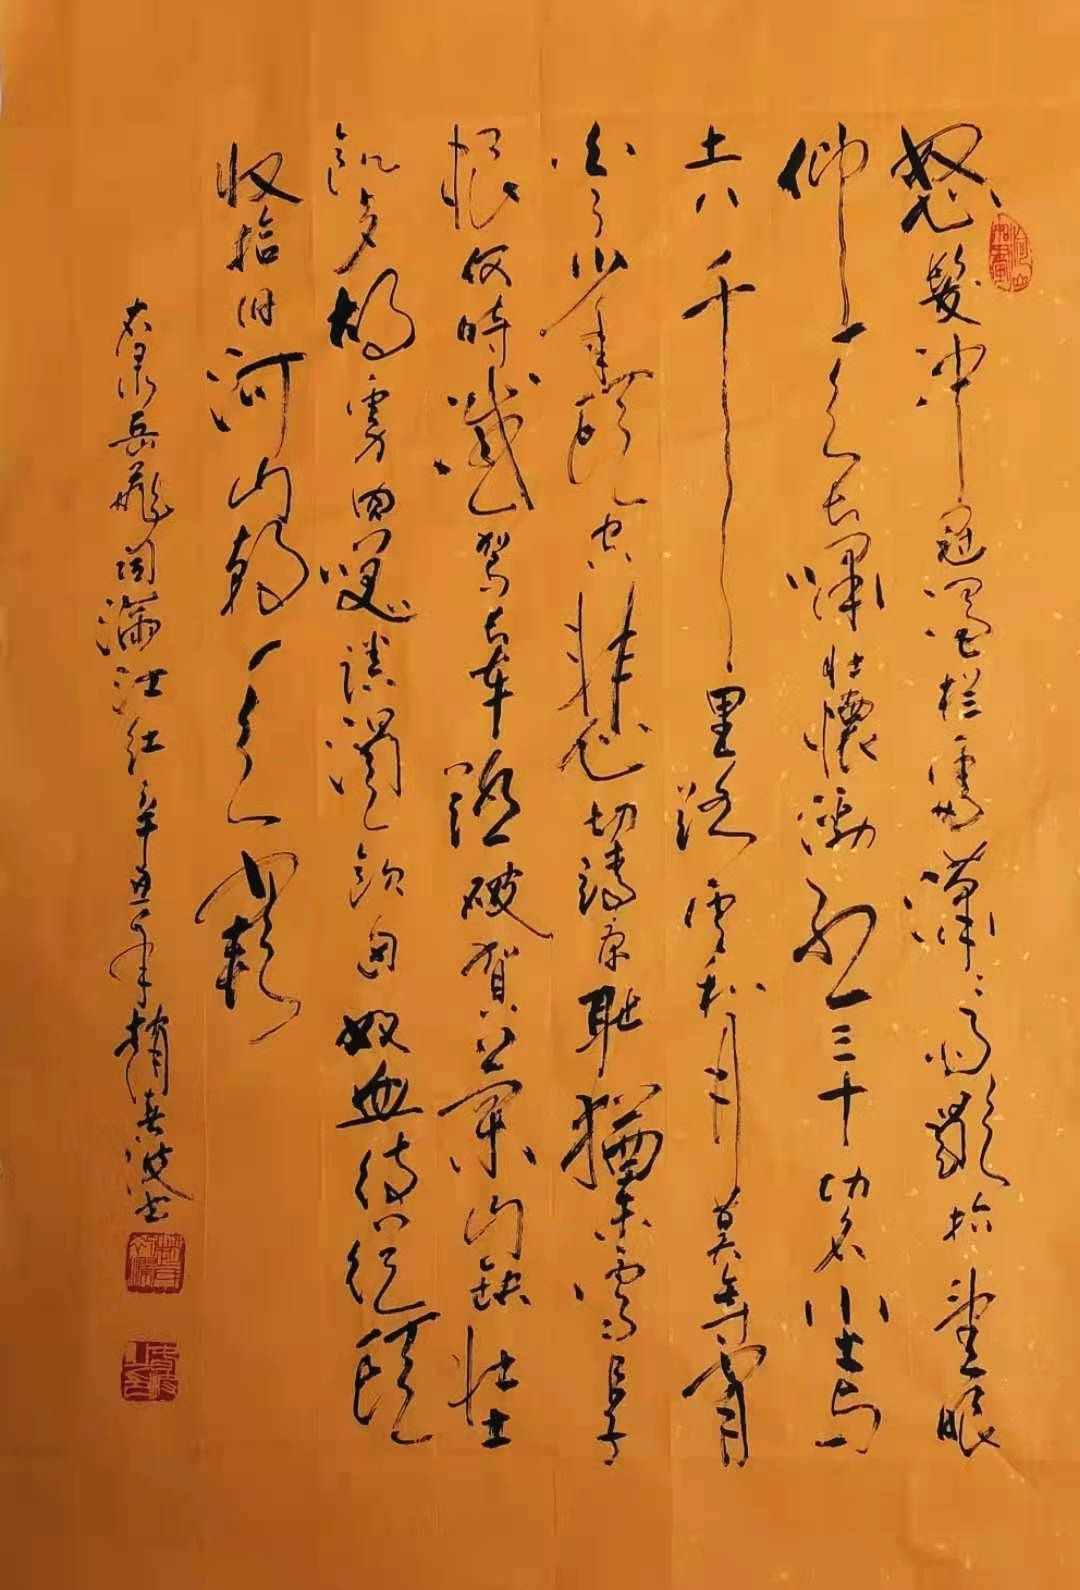 怒髮冲冠凭栏處潇々雨歇抬望眼
仰天長嘯壮懷激烈三十功名尘与
土八千里路雲和月莫等閒
白了少年頭空悲切靖康耻猶未雪臣子
恨何時滅駕長車踏破賀蘭山缺壮士
飢餐胡虜肉笑談渴飲匈奴血待從頭
收拾旧河山朝天闕
右录岳飛词满江红辛丑年趙春波书